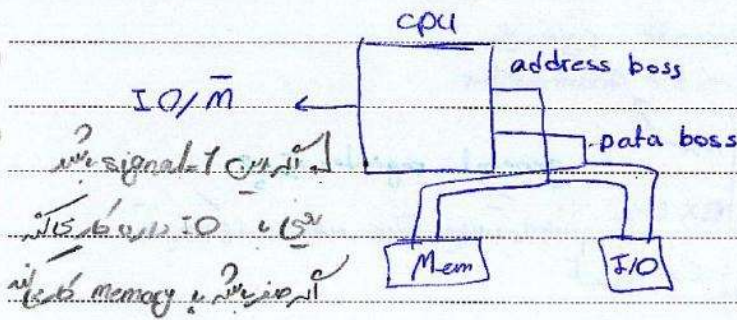 cpu
address boss
IO/M̅
Data boss
اگر این signal=1 باشد
یعنی با IO داره کار می‌کنه
اگر صفر باشه با memory کار می‌کنه
Mem
I/O